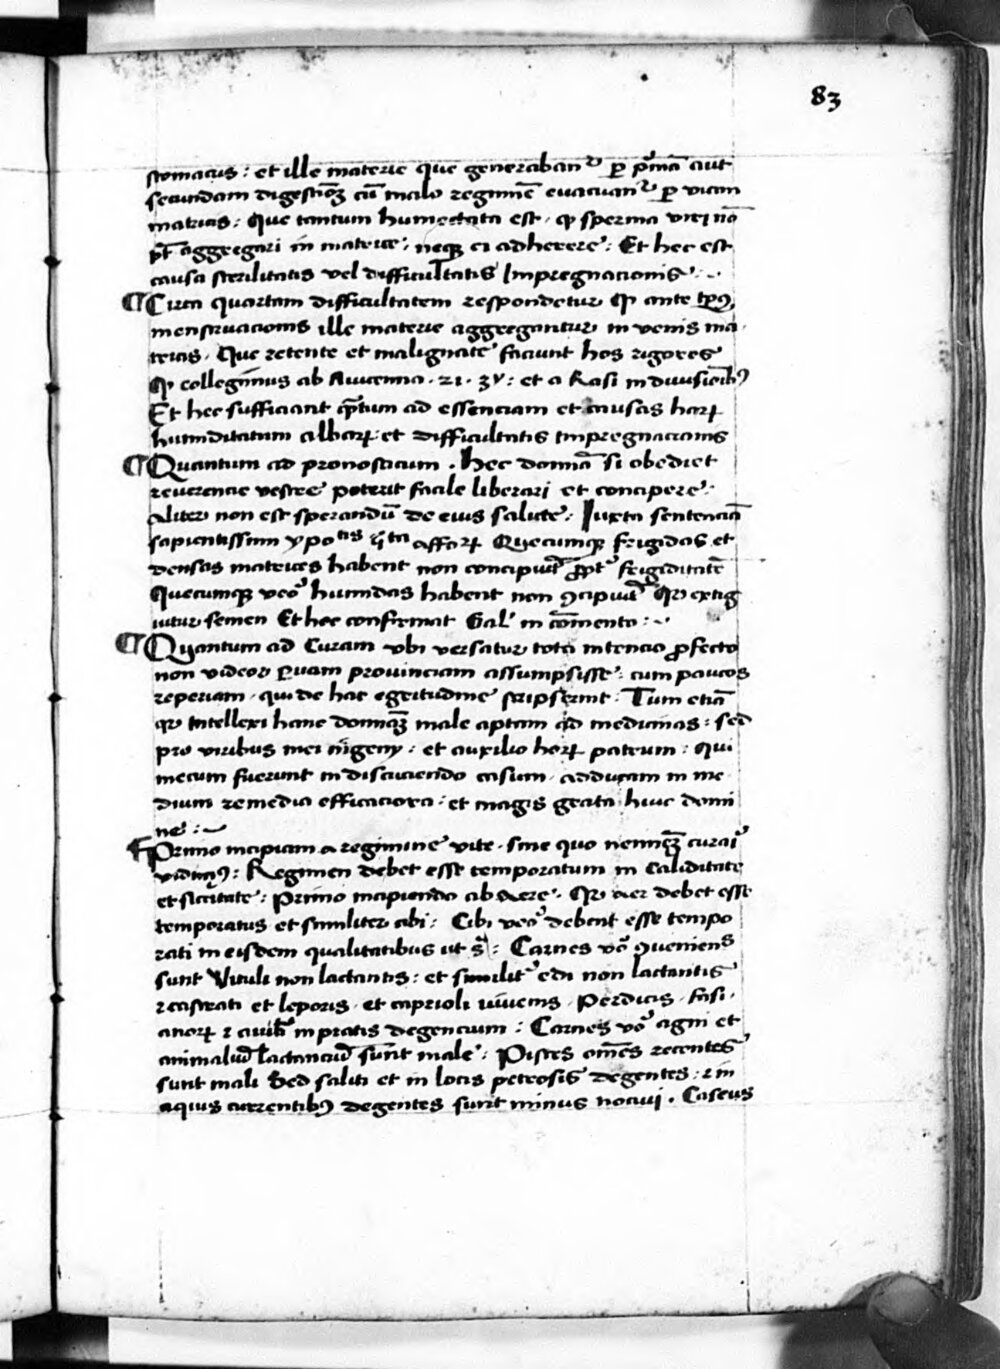 83
stomacus : et ille materie que generabanᵗ ꝑ pͥmā aut
secundam digestiōꝫ cū malo regimīe euacuanᵗ ꝑ viam
matricis : Que tantum humectata est · ꝙ sperma viri nō
pt̄ aggregari in matrice · neqꝫ ei adherere : Et hec est
causa sterilitatis vel difficultatis Impregnacionis : ·
¶ Circa quartam difficultatem respondetur ꝙ ante tp̄ꝰ
menstruacionis ille materie aggregantur in venis ma
tricis · Que retente et malignate faciunt hos rigores
ꝙ collegimus ab Auicenna · 21 · 3 : et a Rasi in diuisioībꝰ
Et hec sufficiant qͣtum ad essenciam et causas haꝝ
humiditatum albaꝝ et difficultatis Impregnacionis
¶ Quantum ad pronosticum · hec domnā si obediet
reuerencie vestre poterit facile liberari et concipere ·
aliter non est sperandū de eius salute : Iuxta sentenciā
sapientissimi ypotis affoꝝ Quecumqꝫ frigidas et
densas matrices habent non concipiūt ꝓpt̄ frigiditatē
Quecumqꝫ veoͦ humidas habent non ꝯcipiūt Qꝛ extig
uitur semen Et hec confirmat Gal' in cōmento : ·
¶ Quantum ad Curam vbi versatur tota intencio ꝓfecto
non videor ꝑuam prouinciam assumpsisse : cum paucos
reperiam · qui de hac egritudine scripserint : Tum etiā
qꝛ intellexi hanc domnaꝫ male aptam ad medicinas : sed
pro viribus mei ingenij : et auxilio hoꝝ patrum : qui
mecum fuerunt in disciciendo casum · adducam in me
dium remedia efficaciora : et magis grata huic domi
ne : ·
¶ Primo incipiam a regimine vite · sine quo nemineꝫ curaī
vidimꝰ : Regimen debet esse temporatum in caliditate
et siccitate : Primo incipiendo ab aere · Qꝛ aer debet esse
temporatus et similiter cibi : Cibi veoͦ debent esse tempo
rati in eisdem qualitatibus ut sͣ : Carnes vͦo ꝯueniens
sunt Vituli non lactantis : et similit̄ edi non lactantis
⁊ castrati et leporis · et caprioli iuuenis · Perdicis · fasi ·
anoꝝ ⁊ auiū in pratis degencium : Carnes vͦo agni et
animaliū lactanciū sunt male : Pisces om̄es recentes
sunt mali Sed saliti et in locis petrosis degentes : ⁊ in
aquis currentibꝰ degentes sunt minus nociui · Caseus